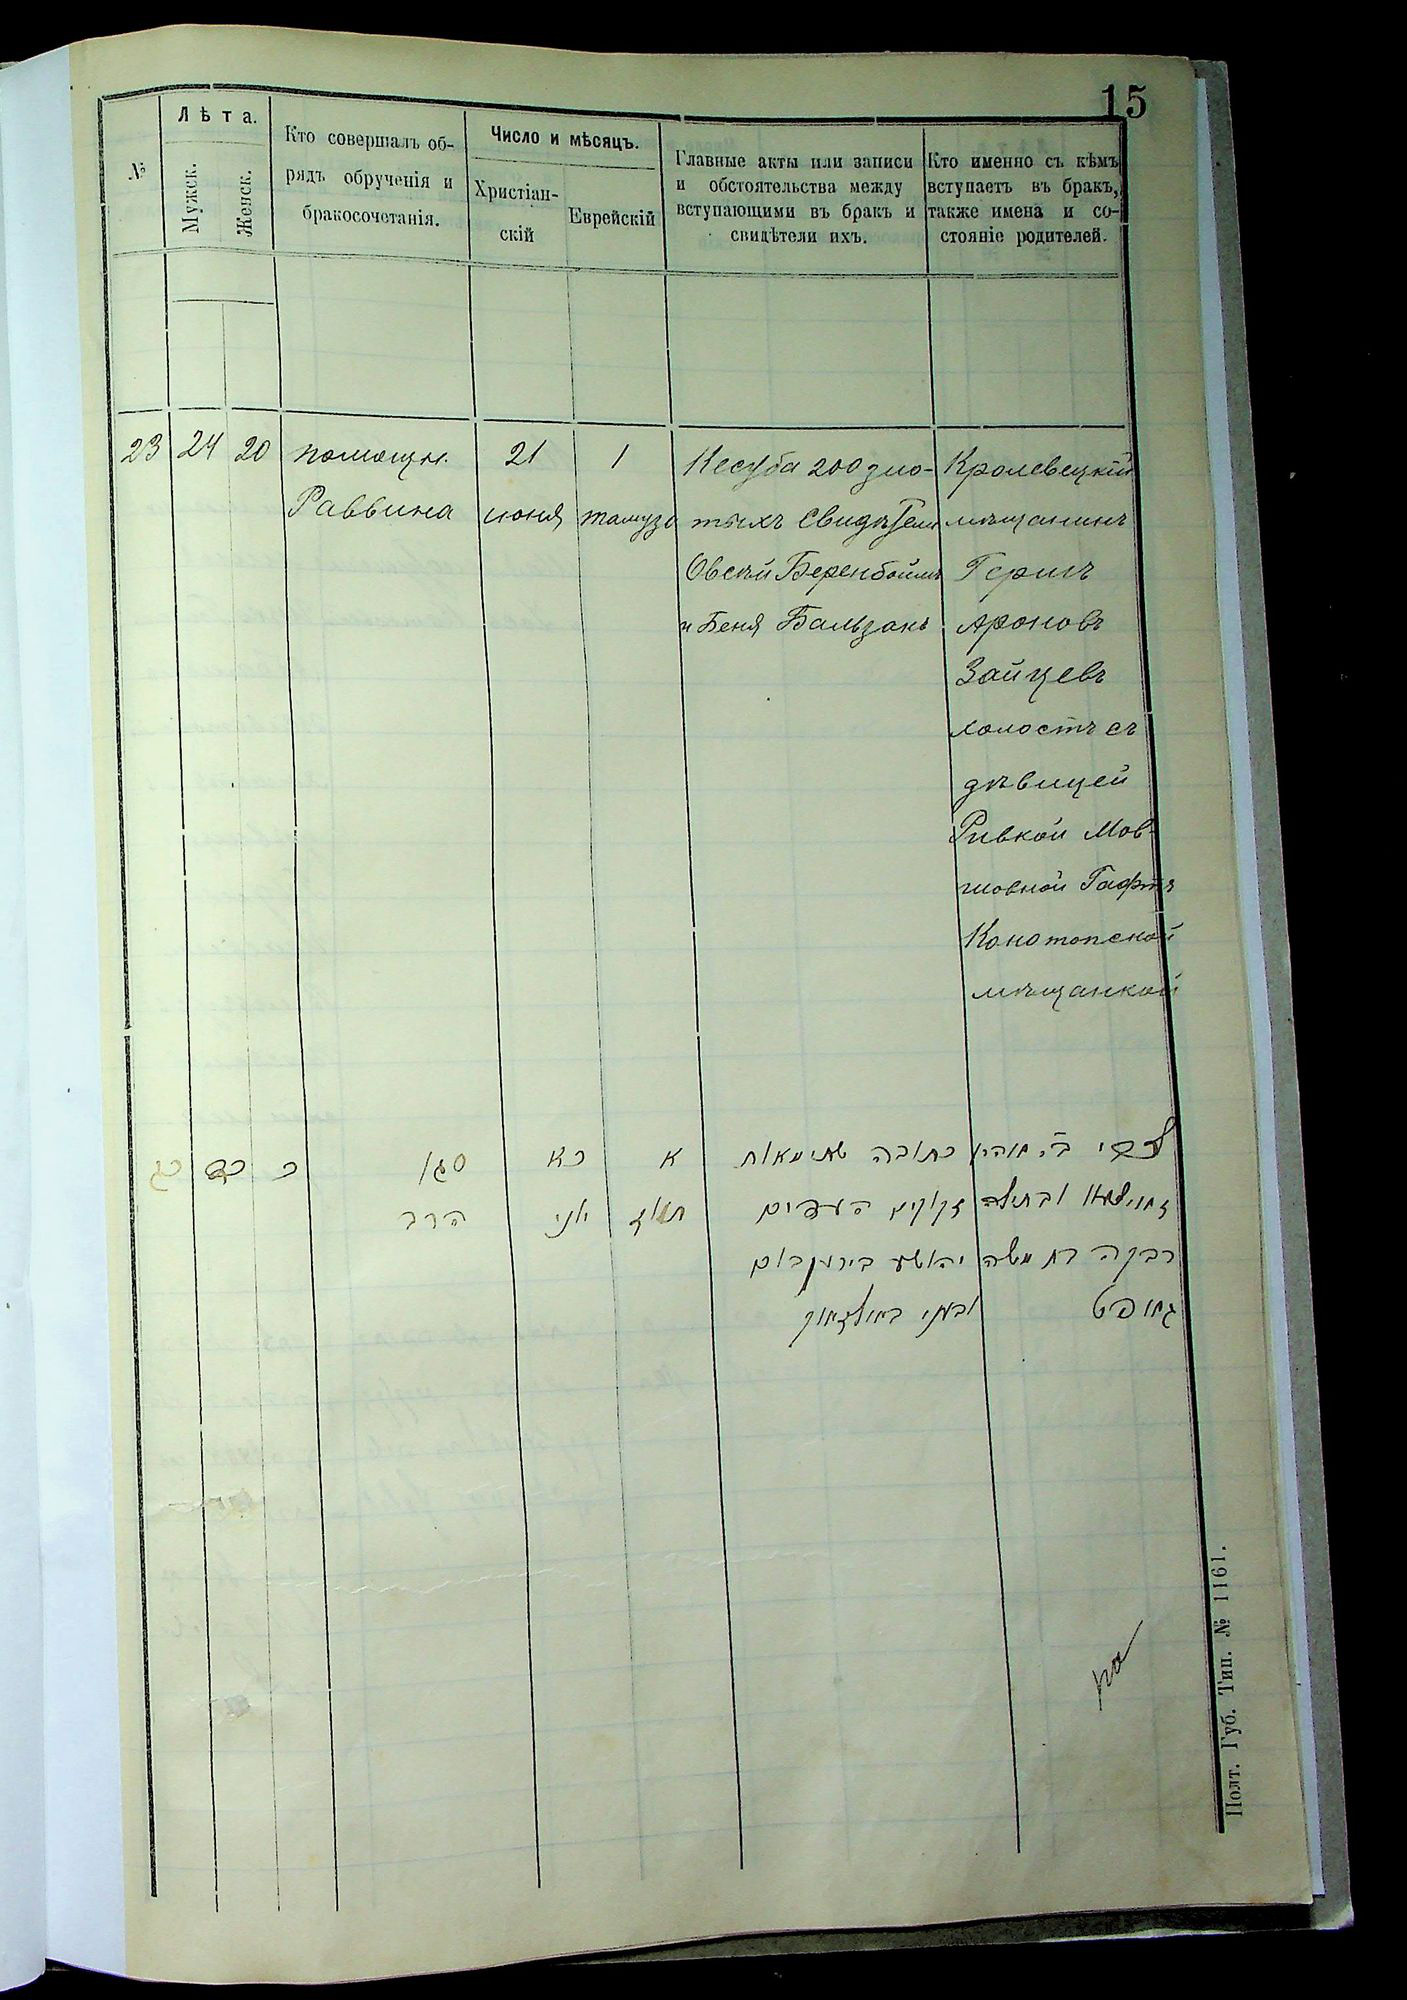 15
№
Лѣта.
Мужск.
Женск.
Кто совершалъ об-
рядъ обрученія и
бракосочетанія.
Число и мѣсяцъ.
Христіан-
скій
Еврейскій
Главные акты или записи
и обстоятельства между
вступающими въ бракъ и
свидѣтели ихъ.
Кто именно съ кѣмъ
вступаетъ въ бракъ,
также имена и со-
стояніе родителей.
23
24
20
помощн.
Раввина
21
июня
1
тамуза
Кесуба 200 зло-
тыхъ Свидѣтели
Овсѣй Беренбоймъ
и Беня Бальзакъ
Кролевецкій
мѣщанинъ
Гершъ
Ароновъ
Зайцевъ
холостъ съ
дѣвицей
Ривкой Мов-
шовной Гафтъ
Конотопской
мѣщанкой
כג
כד
כ
סגן
הרב
כא
יוני
א
תמוז
כתובה שתי מאות
זקוקים העדים
יהושע בירענבוים
ובעני באלזאק
צבי ב״ר אהרן
זאיצעוו ובתולה
רבקה בת משה
גאופט
Полт. Губ. Тип. № 1161.